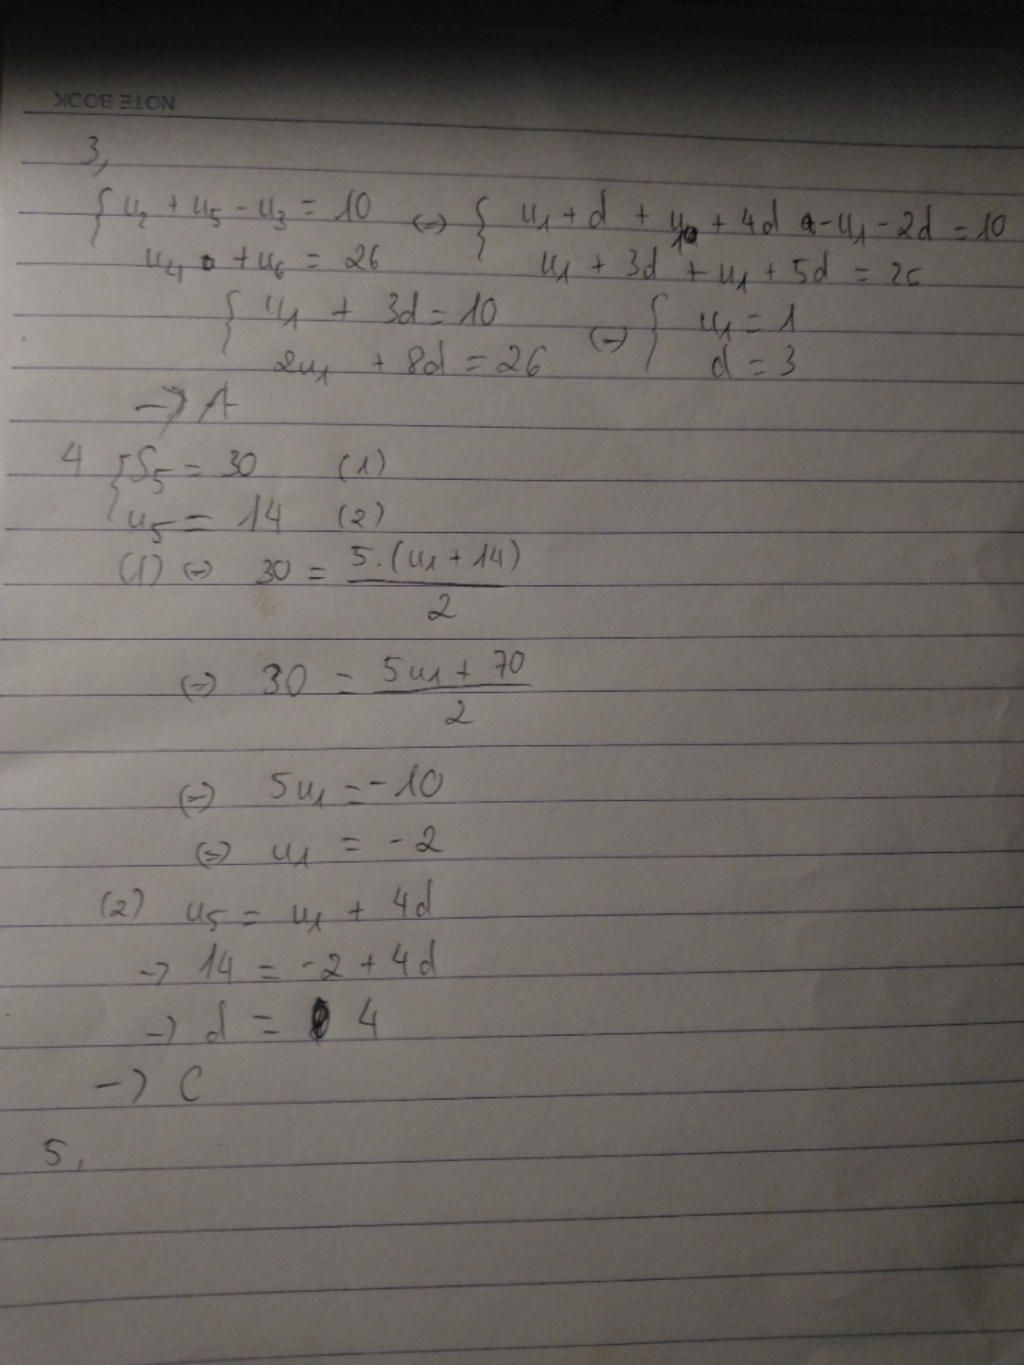 NOTE BOOK
3,
{ u₂ + u₅ - u₃ = 10 (-) { u₁ + d + u₁ + 4d - u₁ - 2d = 10
u₄ + u₆ = 26 u₁ + 3d + u₁ + 5d = 26
{ u₁ + 3d = 10 (-) { u₁ = 1
2u₁ + 8d = 26 d = 3
-> A
4 { S₅ = 30 (1)
u₅ = 14 (2)
(1) (-) 30 = 5.(u₁ + 14) / 2
(-) 30 = 5u₁ + 70 / 2
(-) 5u₁ = -10
(-) u₁ = -2
(2) u₅ = u₁ + 4d
-> 14 = -2 + 4d
-> d = 4
-> C
5,